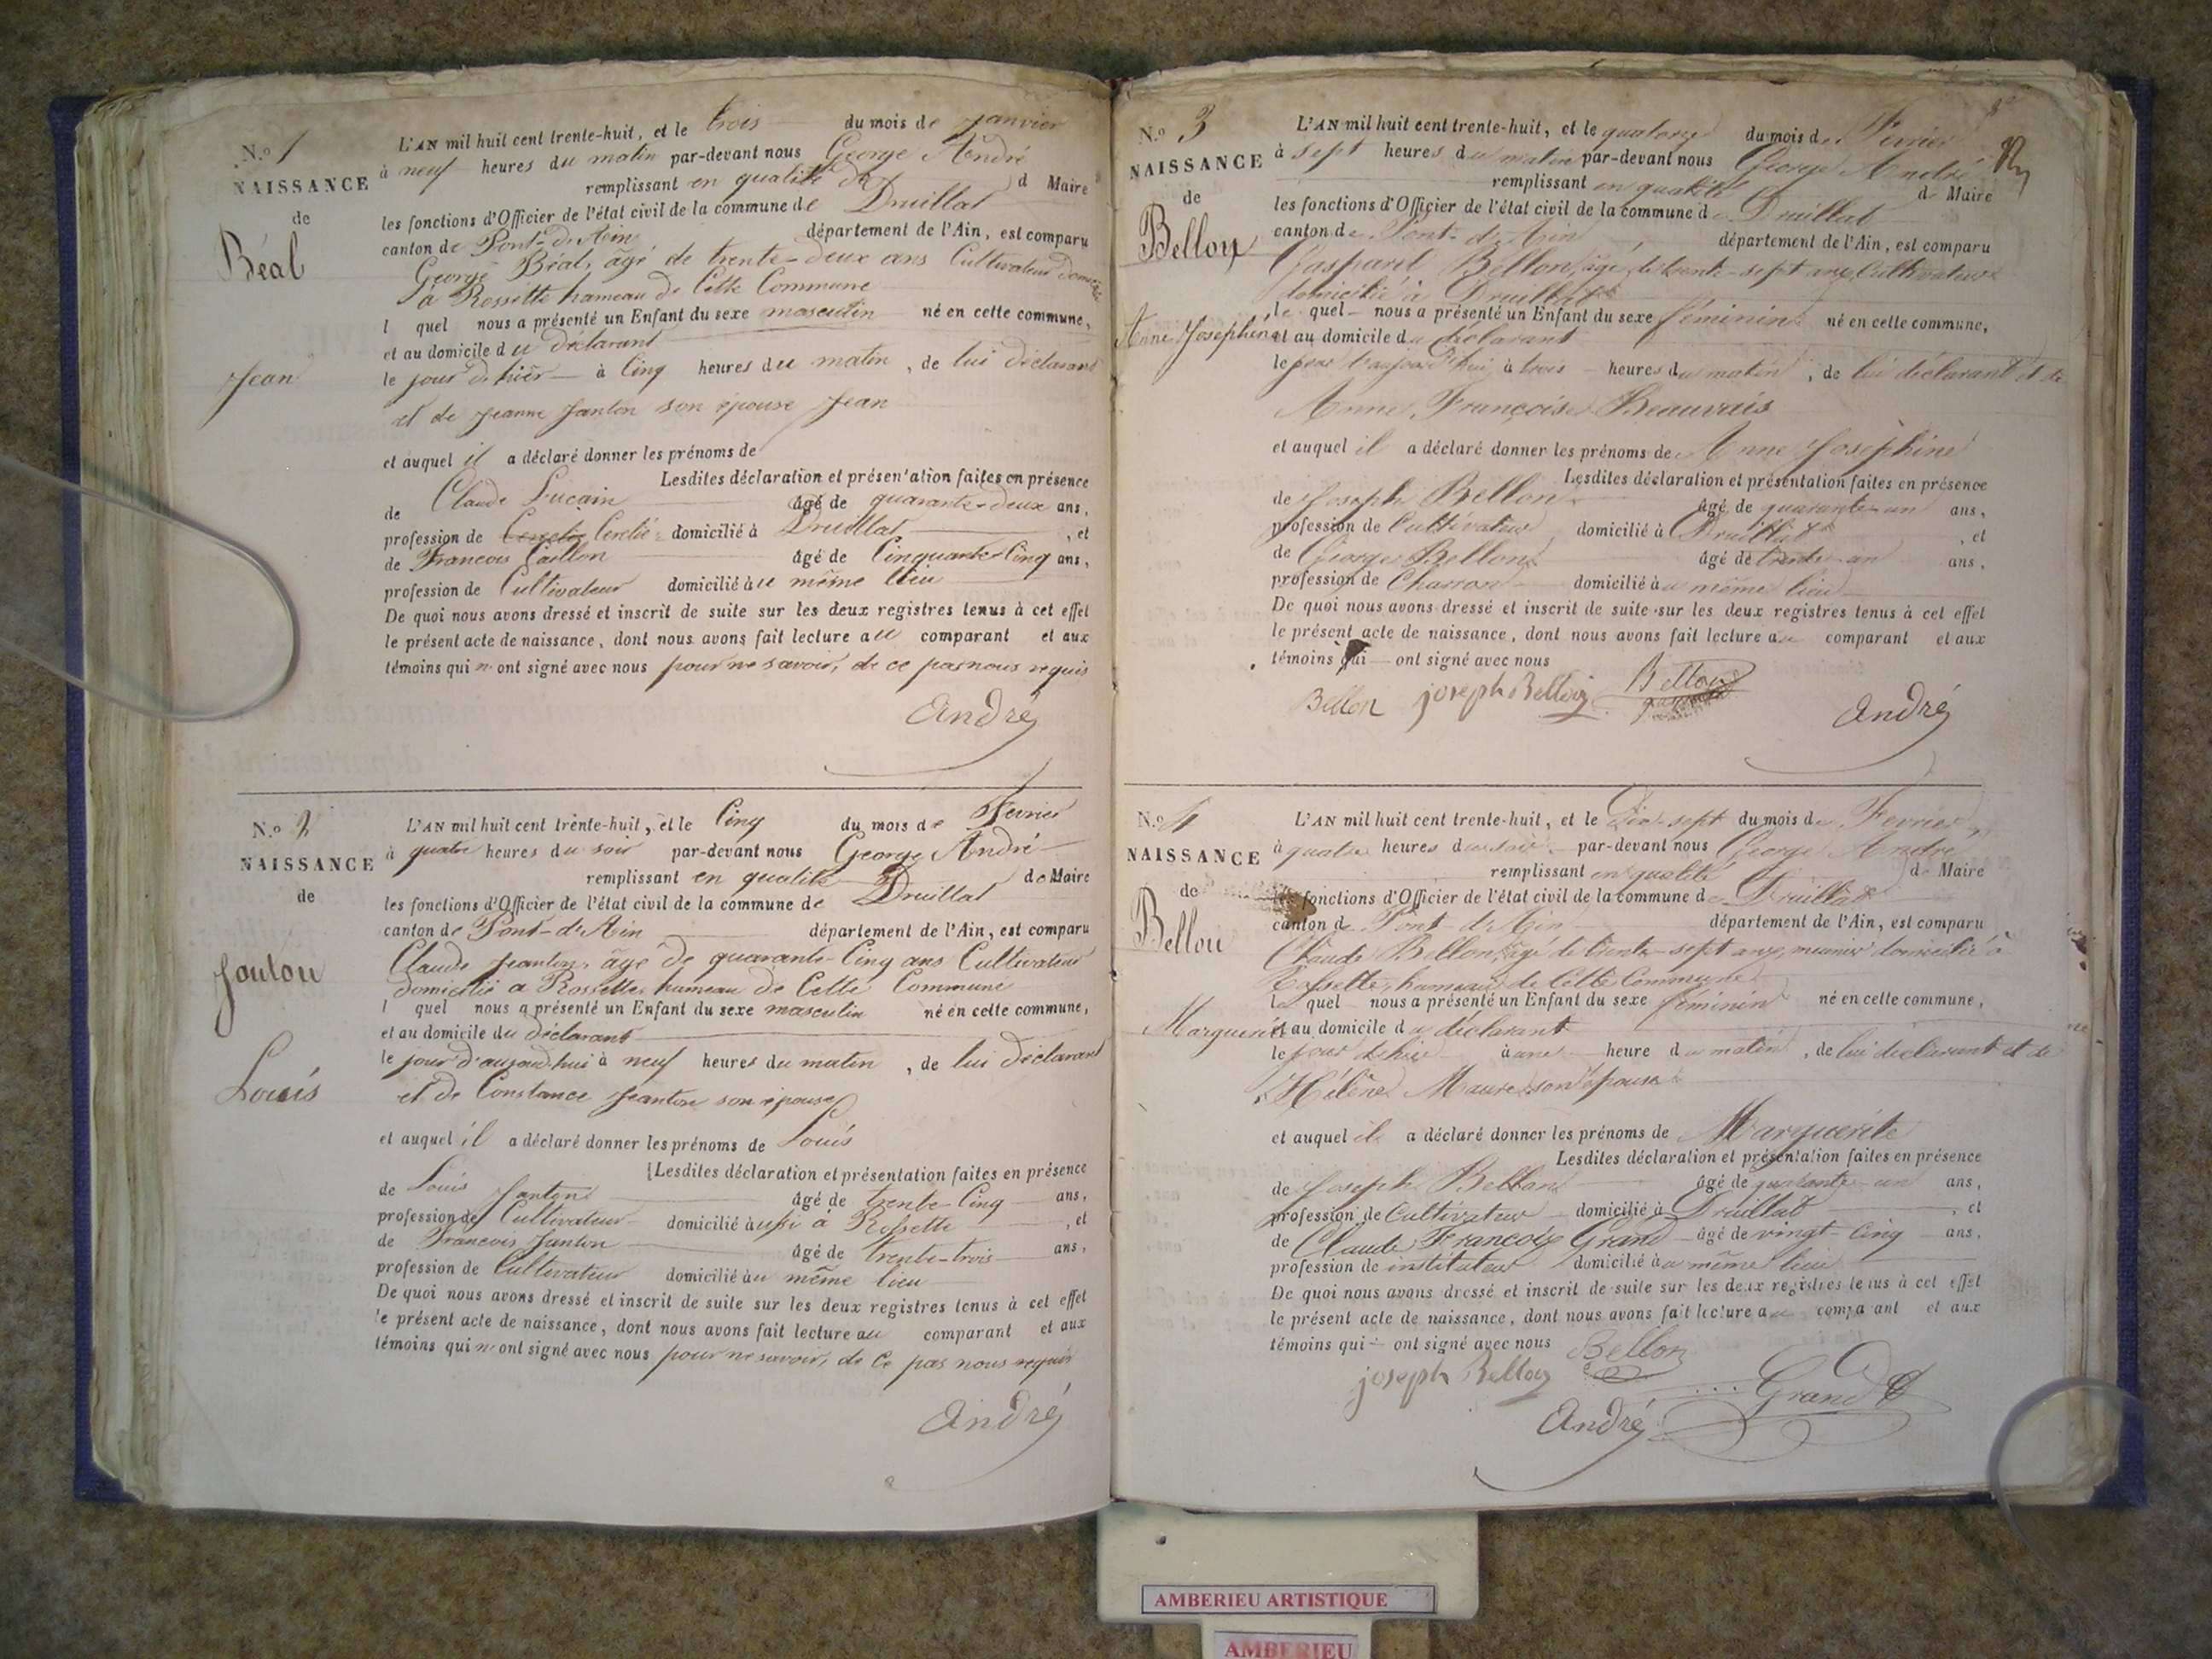 N.º 1
NAISSANCE
de
Béal
Jean
L'AN mil huit cent trente-huit, et le trois du mois de Janvier
à neuf heures du matin par-devant nous George André
remplissant en qualité de d Maire
les fonctions d'Officier de l'état civil de la commune de Druillat
canton de Pont-d'Ain département de l'Ain, est comparu
George Béal, âgé de trente-deux ans Cultivateur
à Rossette hameau de Cette Commune
l quel nous a présenté un Enfant du sexe masculin né en cette commune,
et au domicile du déclarant
le jour d'hier à Cinq heures du matin, de lui déclarant
et de Jeanne Janton son épouse Jean
et auquel il a déclaré donner les prénoms de
Lesdites déclaration et présentation faites en présence
de Claude Lucain âgé de quarante-deux ans,
profession de domicilié à Druillat, et
de Francois Caillon âgé de Cinquante-Cinq ans,
profession de Cultivateur domicilié au même lieu
De quoi nous avons dressé et inscrit de suite sur les deux registres tenus à cet effet
le présent acte de naissance, dont nous avons fait lecture au comparant et aux
témoins qui n'ont signé avec nous pour ne savoir, de ce par nous requis
André
N.º 2
NAISSANCE
de
Jantou
Louis
L'AN mil huit cent trente-huit, et le Cinq du mois de Fevrier
à quatre heures du soir par-devant nous George André
remplissant en qualité de Maire
les fonctions d'Officier de l'état civil de la commune de Druillat
canton de Pont-d'Ain département de l'Ain, est comparu
Claude Jeanton, âgé de quarante-Cinq ans Cultivateur
domicilié a Rossette hameau de Cette Commune
l quel nous a présenté un Enfant du sexe masculin né en cette commune,
et au domicile du déclarant
le jour d'aujourd'hui à neuf heures du matin, de lui déclarant
et de Constance Jeanton son épouse
et auquel il a déclaré donner les prénoms de Louis
Lesdites déclaration et présentation faites en présence
de Louis Janton âgé de trente-Cinq ans,
profession de Cultivateur domicilié aussi à Rossette, et
de Francois Janton âgé de trente-trois ans,
profession de Cultivateur domicilié au même lieu
De quoi nous avons dressé et inscrit de suite sur les deux registres tenus à cet effet
le présent acte de naissance, dont nous avons fait lecture au comparant et aux
témoins qui n'ont signé avec nous pour ne savoir, de ce par nous requis
André
N.º 3
NAISSANCE
de
Bellon
Anne Josephine
L'AN mil huit cent trente-huit, et le quatorze du mois de Fevrier
à sept heures du matin par-devant nous George André
remplissant en qualité de Maire
les fonctions d'Officier de l'état civil de la commune de Druillat
canton de Pont-d'Ain, département de l'Ain, est comparu
Gaspard Bellon, âgé de trente-sept ans, Cultivateur
domicilié à Druillat
le quel nous a présenté un Enfant du sexe féminin né en cette commune,
et au domicile du déclarant
le jour d'aujourd'hui à trois heures du matin, de lui déclarant et de
Anne Françoise Beauvais
et auquel il a déclaré donner les prénoms de Anne Josephine
Lesdites déclaration et présentation faites en présence
de Joseph Bellon âgé de quarante-un ans,
profession de Cultivateur domicilié à Druillat, et
de George Bellon âgé de trente-un ans,
profession de Charron domicilié au même lieu
De quoi nous avons dressé et inscrit de suite sur les deux registres tenus à cet effet
le présent acte de naissance, dont nous avons fait lecture au comparant et aux
témoins qui ont signé avec nous
Bellon joseph Bellon Bellon
André
N.º 4
NAISSANCE
de
Bellon
Marguerite
L'AN mil huit cent trente-huit, et le Dix-sept du mois de Fevrier
à quatre heures du soir par-devant nous George André
remplissant en qualité de Maire
les fonctions d'Officier de l'état civil de la commune de Druillat
canton de Pont-d'Ain département de l'Ain, est comparu
Claude Bellon, âgé de trente-sept ans, meunier domicilié à
Rossette, hameau de Cette Commune
le quel nous a présenté un Enfant du sexe féminin né en cette commune,
et au domicile du déclarant
le jour d'hier à une heure du matin, de lui déclarant et de
Hélène Maure son épouse
et auquel il a déclaré donner les prénoms de Marguerite
Lesdites déclaration et présentation faites en présence
de Joseph Bellon âgé de quarante-un ans,
profession de Cultivateur domicilié à Druillat, et
de Claude François Grand âgé de vingt-Cinq ans,
profession de instituteur domicilié au même lieu
De quoi nous avons dressé et inscrit de suite sur les deux registres tenus à cet effet
le présent acte de naissance, dont nous avons fait lecture au comparant et aux
témoins qui ont signé avec nous Bellon
joseph Bellon
Grand
André
AMBERIEU ARTISTIQUE
AMBERIEU